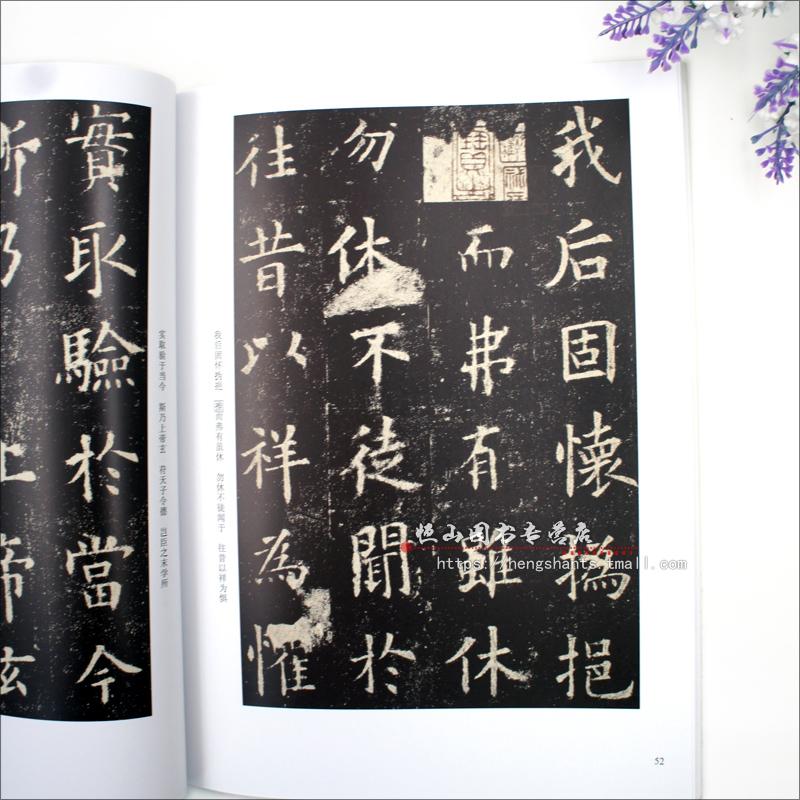 我后固懷撝挹
而弗有雖休
勿休不徒聞於
往昔以祥為懼
我后固怀撝挹 [推]而弗有虽休 勿休不徒闻于 往昔以祥为惧
52
實取驗於當今
斯乃上帝玄
实取验于当今 斯乃上帝玄 符天子令德 岂臣之末学所
恒山图书专营店
https://hengshants.tmall.com